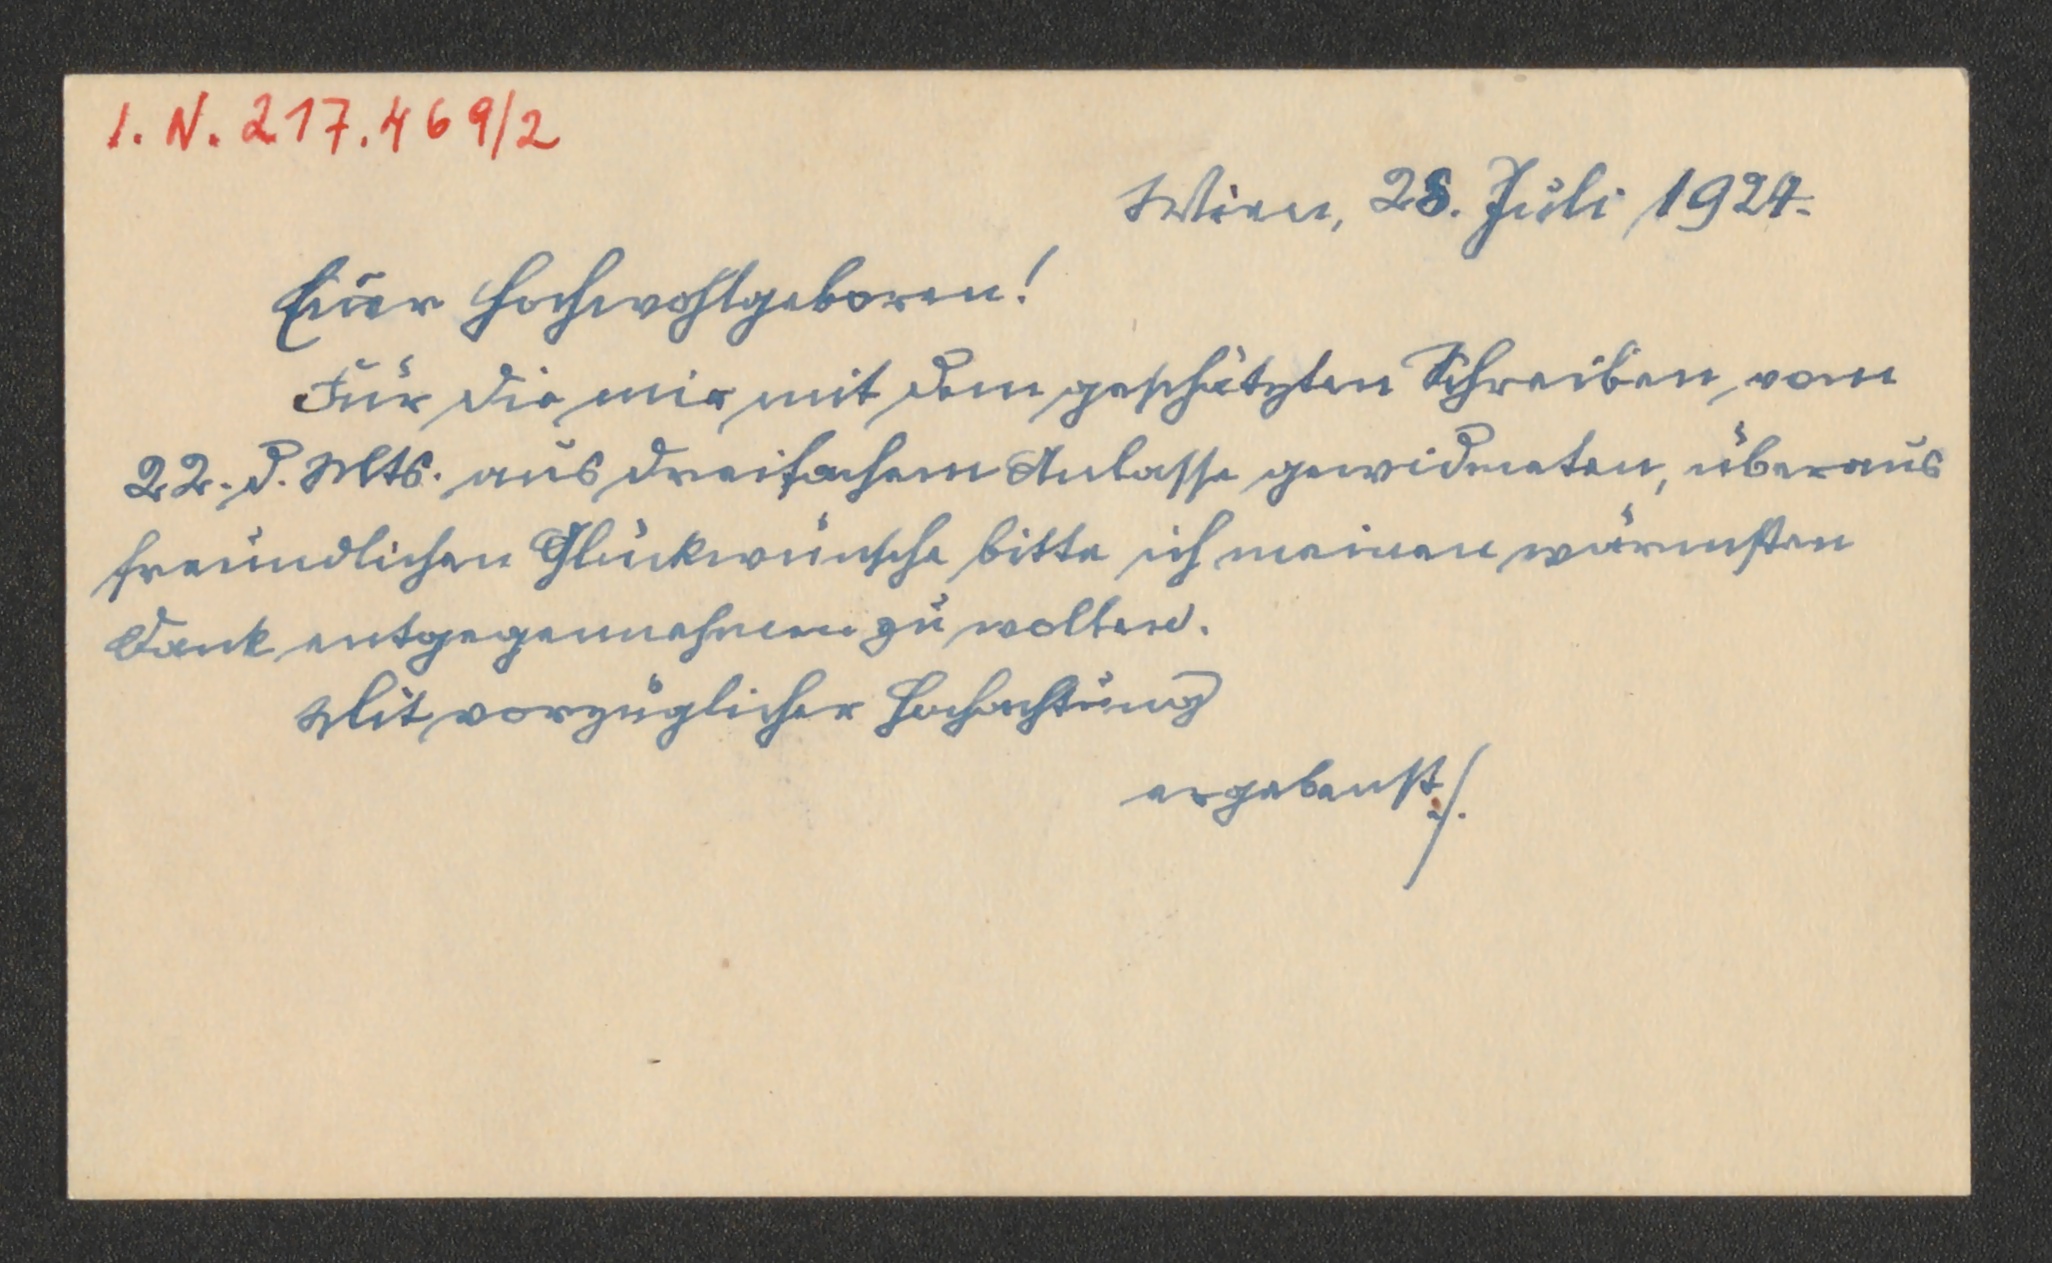 I. N. 217.469/2
Wien, 28. Juli 1924.
Euer Hochwohlgeboren!
Für die mir mit dem geschätzten Schreiben vom
22. d. Mts. aus dreifachem Anlasse gewidmeten, überaus
freundlichen Glückwünsche bitte ich meinen wärmsten
Dank entgegennehmen zu wollen.
Mit vorzüglicher Hochachtung
ergebenst